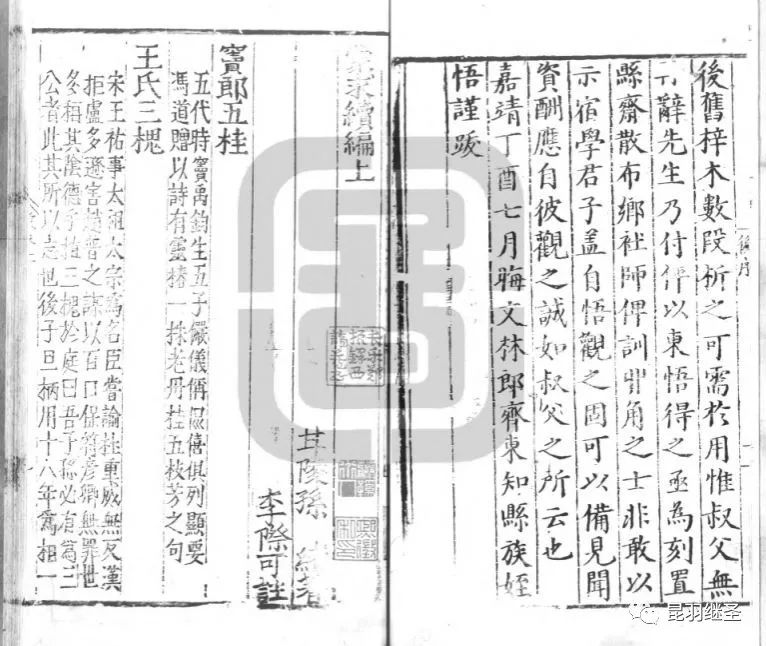 後舊梓木數段析之可需於用惟叔父無
辭先生乃付俾以東悟得之亟為刻置
縣齋散布鄉社師俾訓丱角之士非敢以
示宿學君子盖自悟觀之固可以備見聞
資酬應自彼觀之誠如叔父之所云也
嘉靖丁酉七月晦文林郎齊東知縣族姪
悟謹跋
後序
續編上
茸陵孫
李際可註
竇郎五桂
五代時竇禹鈞生五子儼儀侢偘僖俱列顯要
馮道贈以詩有靈椿一株老丹桂五枝芳之句
王氏三槐
宋王祐事太祖太宗為名臣嘗諭杜重威無反漢
拒盧多遜害趙普之謀以百口保符彦卿無罪世
多稱其陰德手植三槐於庭曰吾子孫必有為三
公者此其所以志也後子旦柄用十八年為相一
昆羽继圣